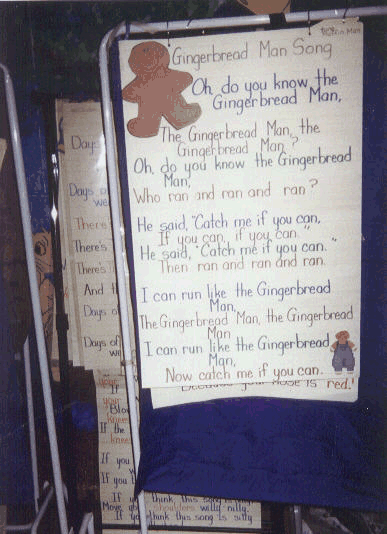 Gingerbread Man Song
Oh, do you know the
Gingerbread Man,
The Gingerbread Man, the
Gingerbread Man?
Oh, do you know the Gingerbread
Man,
Who ran and ran and ran?
He said, "Catch me if you can,
If you can, if you can."
He said, "Catch me if you can."
Then ran and ran and ran.
I can run like the Gingerbread
Man,
The Gingerbread Man, the Gingerbread
Man
I can run like the Gingerbread
Man,
Now catch me if you can.
Because your nose is red.
Days
Days
There
There's
There's
And
Days
Days of
your
If
your
If the
knee
If you
If you
If you think this song is
Move your shoulders willy-nilly,
If you think this song is silly